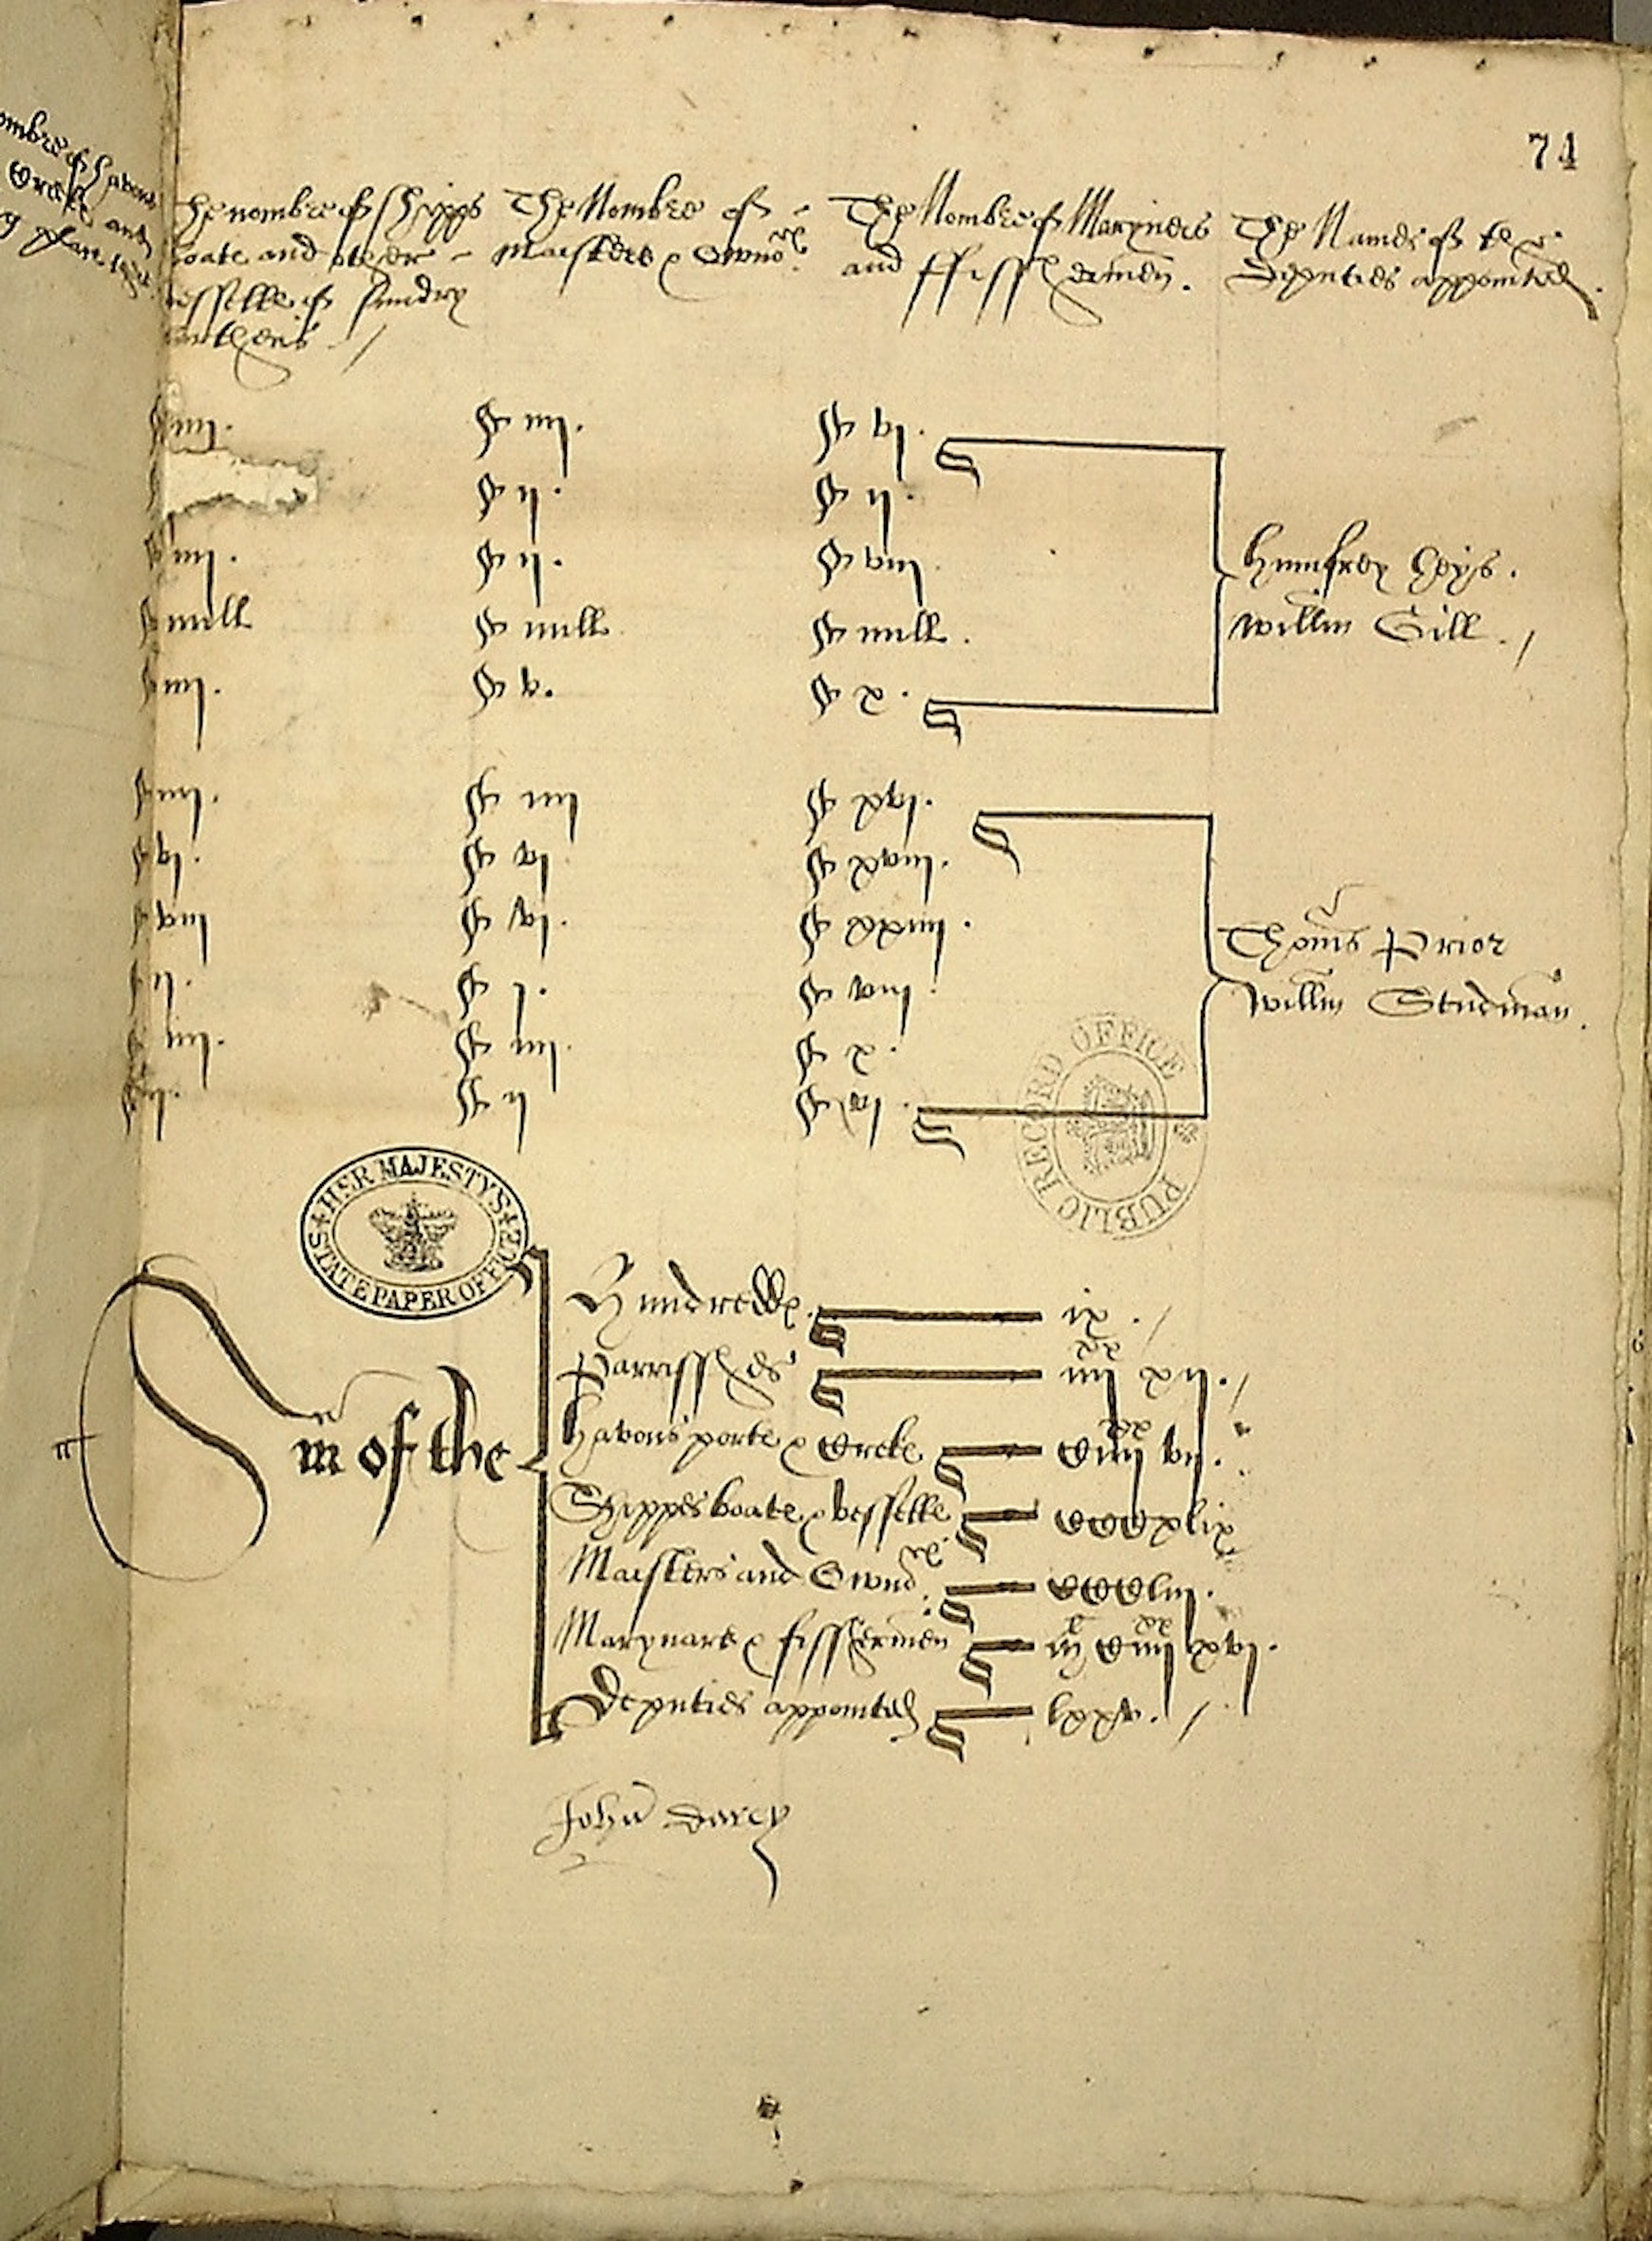 74
ombre of havons
Creke and
The nombre of Shipps
boate and other
vesselle of sundry
burthens
The Nombre of
Maisters & Ownoͬs
The Nombre of Maryners
and ffisshermen.
The Names of the
Deputies appointed.
iiij.
iiij.
vj.
ij.
ij.
iiij.
ij.
viij
null
null
null.
iiij.
v.
x.
Humfrey Heys.
Willm Gill.
iiij.
iiij
xvj.
vj.
vj
xviij.
viij
vj.
xxiiij.
ij.
j.
viij.
iiij.
iiij.
x.
ij.
ij
vj.
Thoms Prior
Willm Studman.
PUBLIC RECORD OFFICE
HER MAJESTY'S
STATE PAPER OFFICE
Sm of the
Hundredes ix.
Parrisshes iiij xx xij.
Havons porte & Creke Ciiij xx vij.
Shippes boate & vesselle CCCxlix
Maisters and Ownoͬs CCClij.
Marynars & fisshermen m CCiiij xx xvj.
Deputies appointed lxxv.
John Darcy